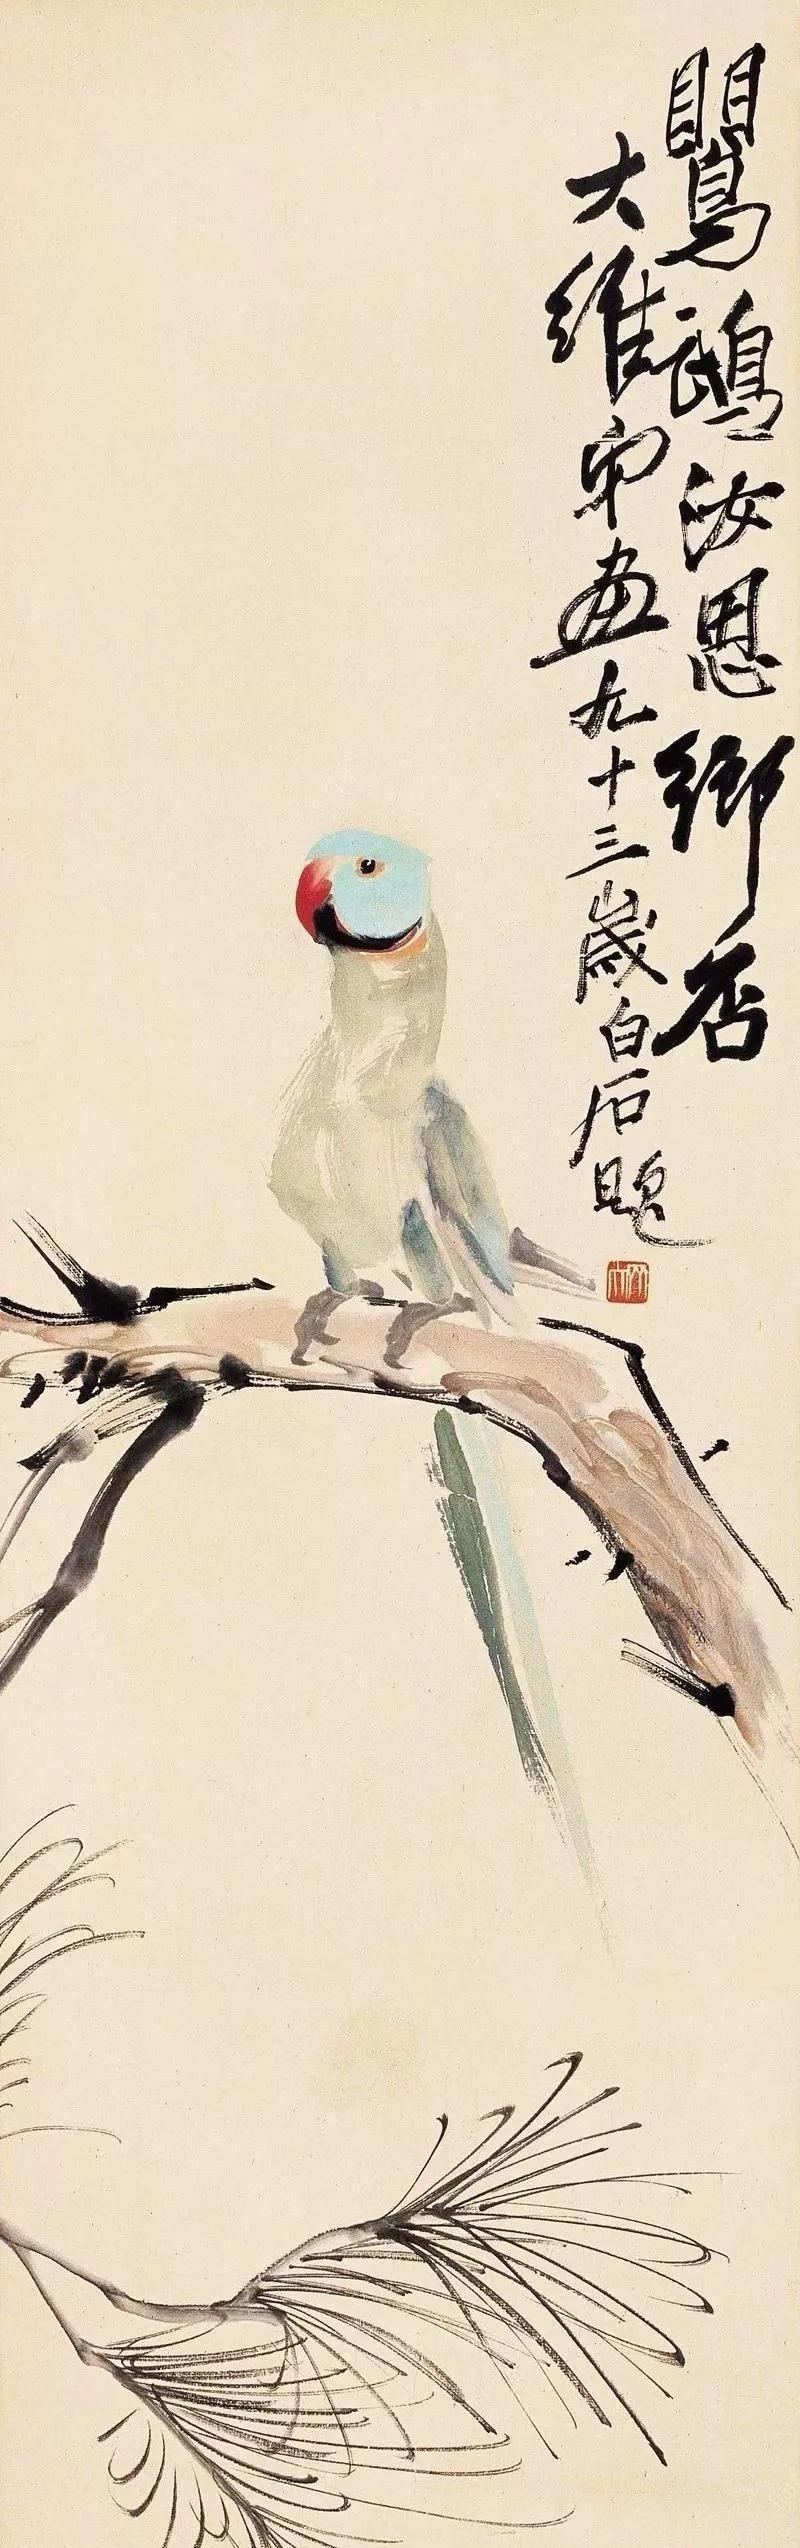 鸚鵡汝思鄉否
大維弟畫九十三歲白石題